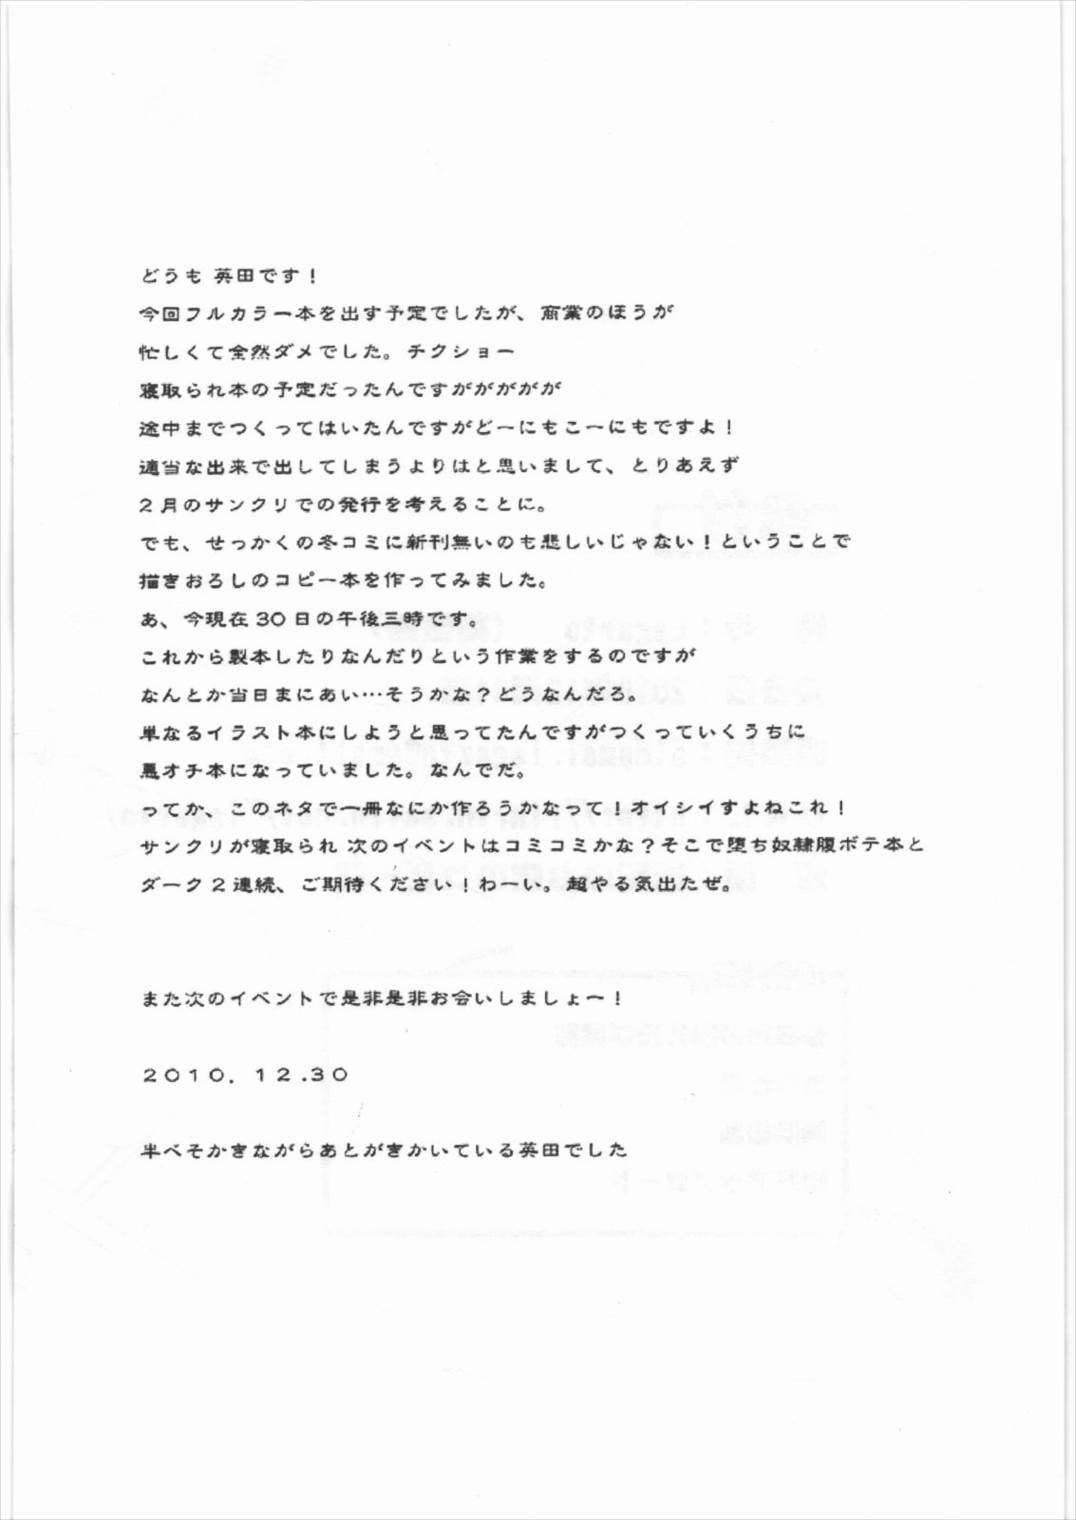 どうも 英田です！
今回フルカラー本を出す予定でしたが、商業のほうが
忙しくて全然ダメでした。チクショー
寝取られ本の予定だったんですがががががが
途中までつくってはいたんですがどーにもこーにもですよ！
適当な出来で出してしまうよりはと思いまして、とりあえず
2月のサンクリでの発行を考えることに。
でも、せっかくの冬コミに新刊無いのも悲しいじゃない！ということで
描きおろしのコピー本を作ってみました。
あ、今現在 30 日の午後三時です。
これから製本したりなんだりという作業をするのですが
なんとか当日まにあい…そうかな？どうなんだろ。
単なるイラスト本にしようと思ってたんですがつくっていくうちに
悪オチ本になっていました。なんでだ。
ってか、このネタで一冊なにか作るうかなって！オイシイすよねこれ！
サンクリが寝取られ 次のイベントはコミコミかな？そこで堕ち奴隷腹ボテ本と
ダーク 2 連続、ご期待ください！わーい。超やる気出たぜ。
また次のイベントで是非是非お会いしましょー！
２０１０．１２.３０
半べそかきながらあとがきかいている英田でした